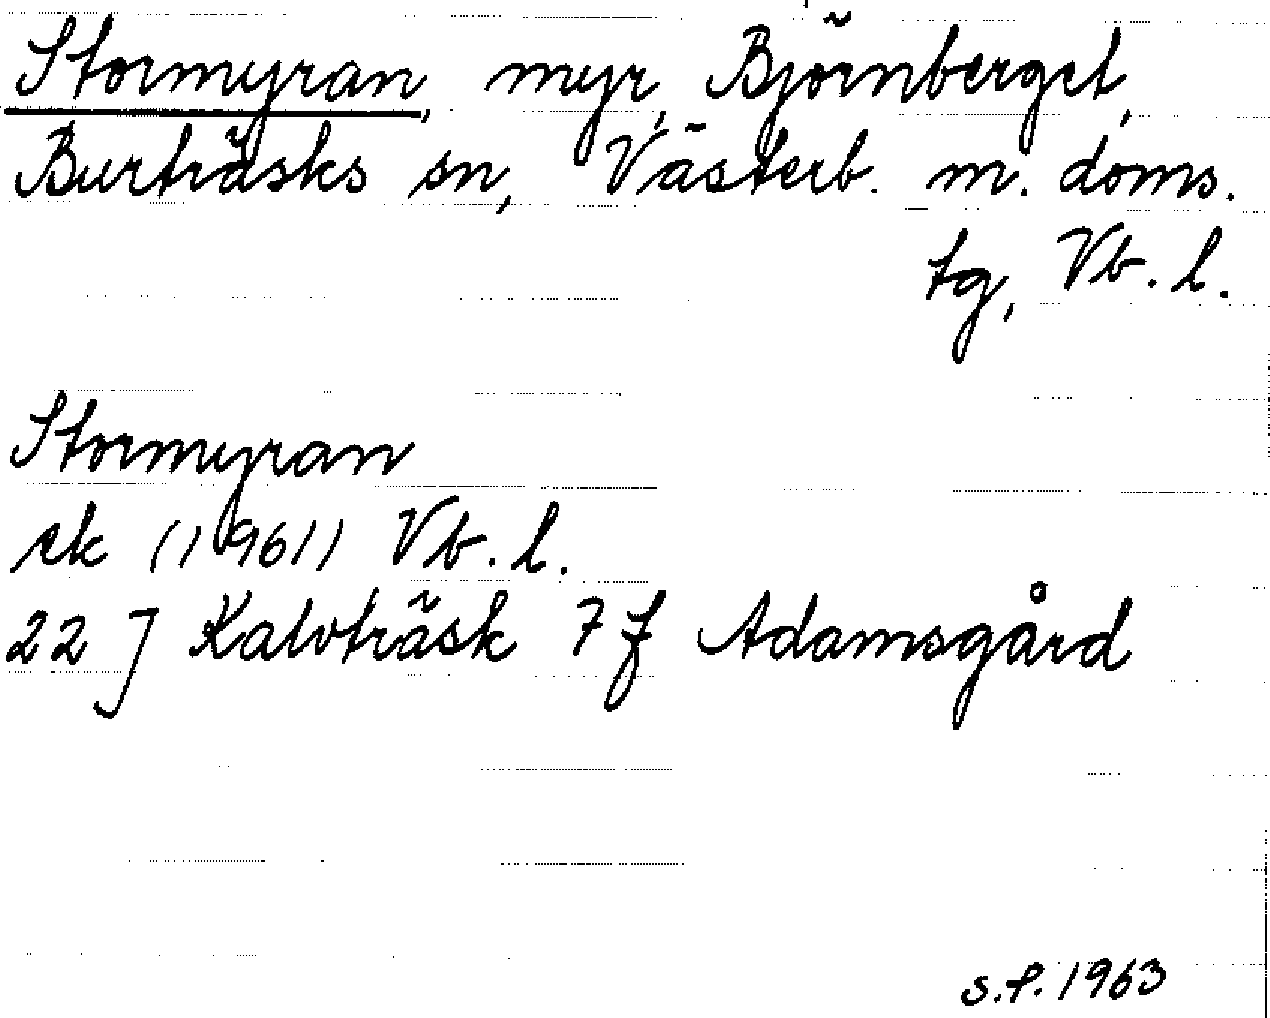 Stormyran, myr, Björnberget,
Burträsks sn, Västerb. m. doms.
tg, Vb. l.
Stormyran
ek (1961) Vb. l.
22 J Kalvträsk 7 f Adamsgård
S.f. 1963